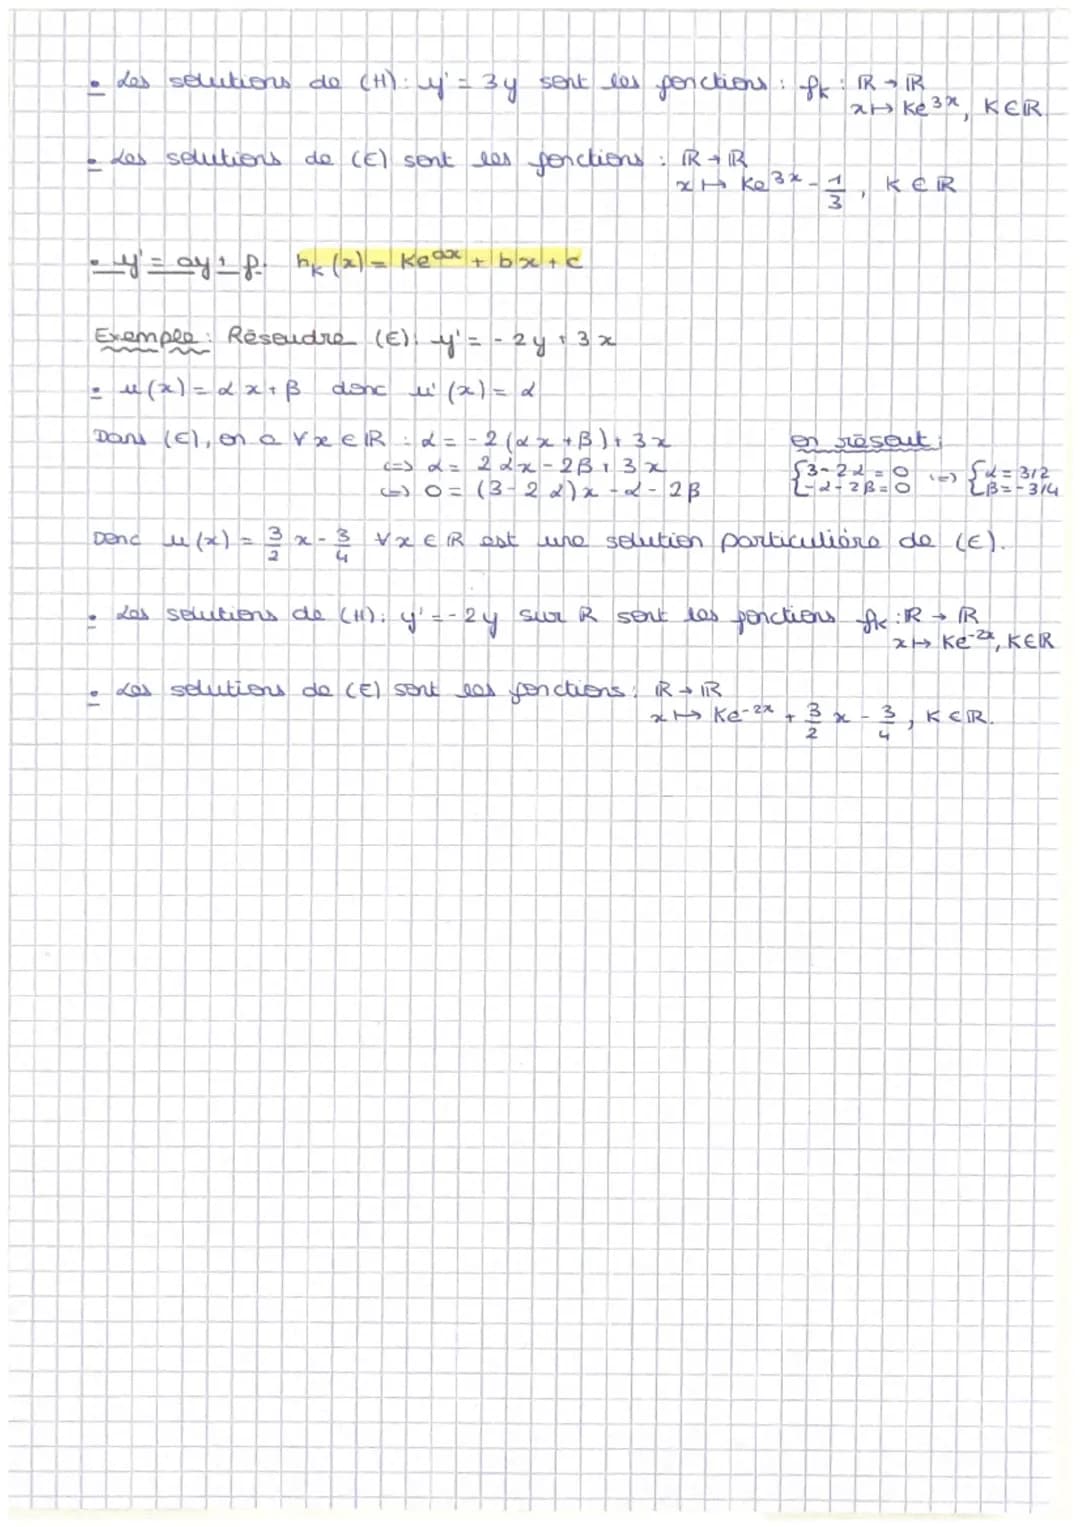 • Les solutions de (H): y' = 3y sont les fonctions : fk : ℝ → ℝ
x ↦ Ke^3x, K ∈ ℝ
• Les solutions de (E) sont les fonctions : ℝ → ℝ
x ↦ Ke^3x - 1/3, K ∈ ℝ
• y' = ay + f: hk (x) = Ke^ax + bx + c
Exemple : Résoudre (E): y' = -2y + 3x
• u(x) = αx + β donc u'(x) = α
Dans (E), on a ∀x ∈ ℝ : α = -2(αx + β) + 3x
⇔ α = 2αx - 2β + 3x
⇔ 0 = (3 - 2α)x - α - 2β
on résout:
{3 - 2α = 0 ⇔ {α = 3/2
{-α - 2β = 0 {β = -3/4
Donc u(x) = 3/2 x - 3/4 ∀x ∈ ℝ est une solution particulière de (E).
• Les solutions de (H): y' = -2y sur ℝ sont les fonctions fk : ℝ → ℝ
x ↦ Ke^-2x, K ∈ ℝ
• Les solutions de (E) sont les fonctions: ℝ → ℝ
x ↦ Ke^-2x + 3/2 x - 3/4, K ∈ ℝ.